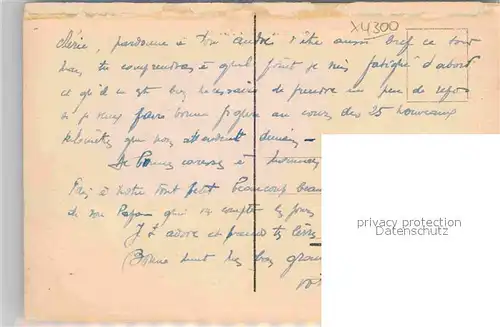 X4300
chérie, pardonne à ton André d'être aussi bref ce soir
mais tu comprendras à quel point je suis fatigué d'abord
et qu'il est bien nécessaire de prendre un peu de repos
si je veux faire bonne figure au cours des 25 nouveaux
kilomètres qui nous attendent demain -
De bonnes caresses à
Puis à notre tout petit beaucoup beau
de son Papa qui compte les jours
Je t'adore et prends tes lèvres
Bonne nuit mes bons
privacy protection
www.ansichtskartenversand.com